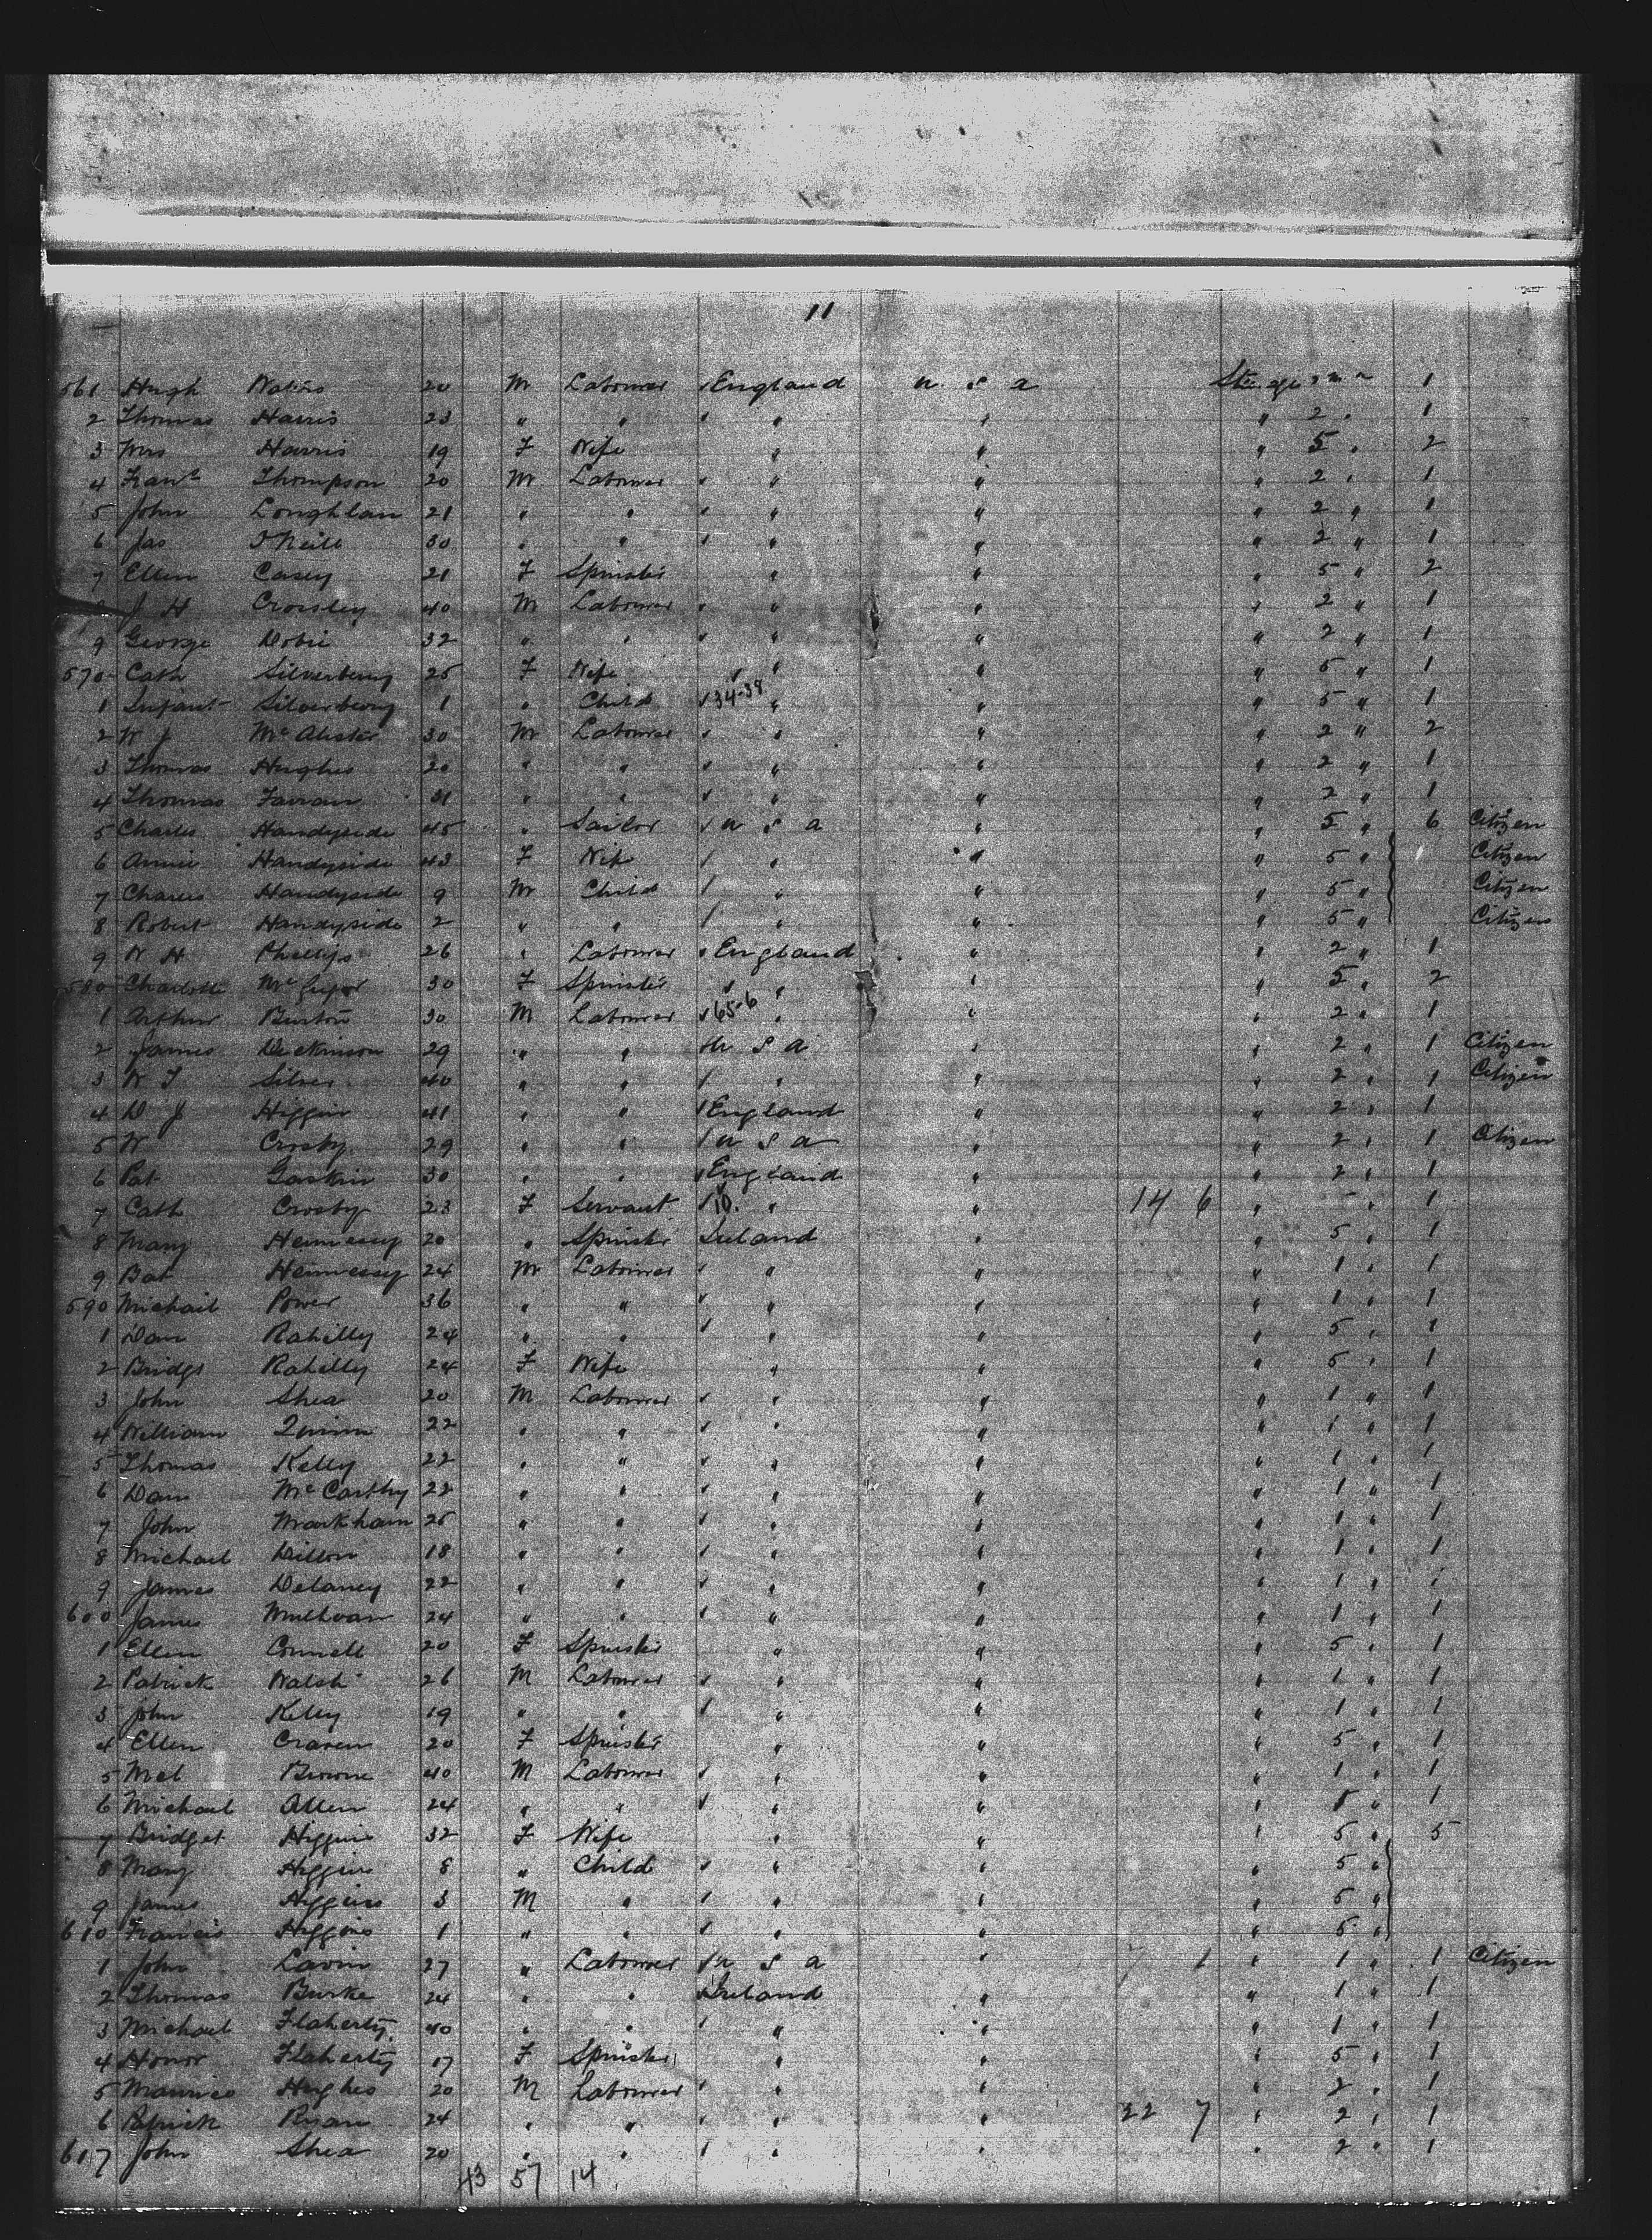 11
561 Hugh 20 M Labourer England U S A Steerage 1
2 Thomas Harris 23 " " " " " 2 " 1
3 Mrs Harris 19 F Wife " " " 5 " 2
4 Thompson 20 M Labourer " " " 2 " 1
5 John Loughlan 21 " " " " " 2 " 1
6 Jas O'Neill 30 " " " " " 2 " 1
7 Ellen Casey 21 F Spinster " " " 5 " 2
J H Crossley 40 M Labourer " " " 2 " 1
9 George Dobie 32 " " " " " 2 " 1
570 Cath Silverberg 25 F Wife " " " 5 " 1
1 Infant Silverberg 1 " Child 34-38 " " " 5 " 1
2 W J McAlister 30 M Labourer " " " 2 " 2
3 Thomas Hughes 20 " " " " " 2 " 1
4 Thomas Farran 31 " " " " " 2 " 1
5 Charles Handyside 45 " Sailor U S A " " 5 " 6 Citizen
6 Annie Handyside 43 F Wife " " " 5 " Citizen
7 Charles Handyside 9 M Child " " " 5 " Citizen
8 Robert Handyside 2 " " " " " 5 " Citizen
9 W H Phillips 26 " Labourer England " " 2 " 1
580 Charlotte 30 F Spinster " " " 5 " 2
1 Arthur Burton 30 M Labourer 65-6 " " " 2 " 1
2 James Dickinson 29 " " U S A " " 2 " 1 Citizen
3 W T Silver 40 " " " " " 2 " 1 Citizen
4 D J Higgins 41 " " England " " 2 " 1
5 W Crosby 29 " " U S A " " 2 " 1 Citizen
6 Pat Gaskin 30 " " England " " 2 " 1
7 Cath Crosby 23 F Servant 10. " " 14 6 " " 1
8 Mary Hennessy 20 " Spinster Ireland " " 5 " 1
9 Bat Hennessy 24 M Labourer " " " 1 " 1
590 Michael Power 36 " " " " " 1 " 1
1 Dan Rahilly 24 " " " " " 5 " 1
2 Bridgt Rahilly 24 F Wife " " " 5 " 1
3 John Shea 20 M Labourer " " " 1 " 1
4 William Quinn 22 " " " " " 1 " 1
5 Thomas Kelly 22 " " " " " 1 " 1
6 Dan McCarthy 22 " " " " " 1 " 1
7 John Markham 25 " " " " " 1 " 1
8 Michael Dillon 18 " " " " " 1 " 1
9 James Delaney 22 " " " " " 1 " 1
600 James 24 " " " " " 1 " 1
1 Ellen Connell 20 F Spinster " " " 5 " 1
2 Patrick Walsh 26 M Labourer " " " 1 " 1
3 John Kelly 19 " " " " " 1 " 1
4 Ellen Craven 20 F Spinster " " " 5 " 1
5 Browne 40 M Labourer " " " 1 " 1
6 Michael Allen 24 " " " " " " 1
7 Bridget Higgins 32 F Wife " " " 5 " 5
8 Mary Higgins " Child " " " 5 "
9 James Higgins 3 M " " " " 5 "
610 Francis Higgins 1 " " " " " 5 "
1 John Lavin 27 " Labourer U S A " 1 " 1 " 1 Citizen
2 Thomas Burke 24 " " Ireland " " 1 " 1
3 Michael Flaherty 40 " " " " " 1 " 1
4 Honor Flaherty 17 F Spinster " " " 5 " 1
5 Maurice Hughes 20 M Labourer " " " 2 " 1
6 Ryan 24 " " " " 22 7 " 2 " 1
617 John Shea 20 " " " " " 2 " 1
43 57 14